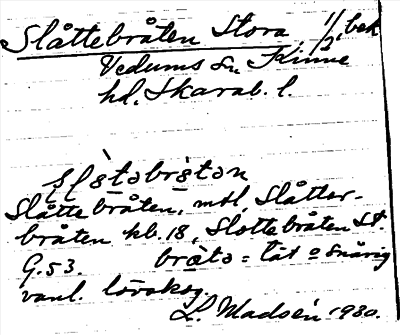 Slåttebråten Stora 1/2, bek
Vedums Sn Kinne
hd. Skarab. l.
slòtəbrò̀tən
Slåttebråten, mtl, Slåtter-
bråten hb. 18, Slottebråten St.
G. 53. bråtə = tät o snårig
vanl. lövskog.
L. Madsén 1930.